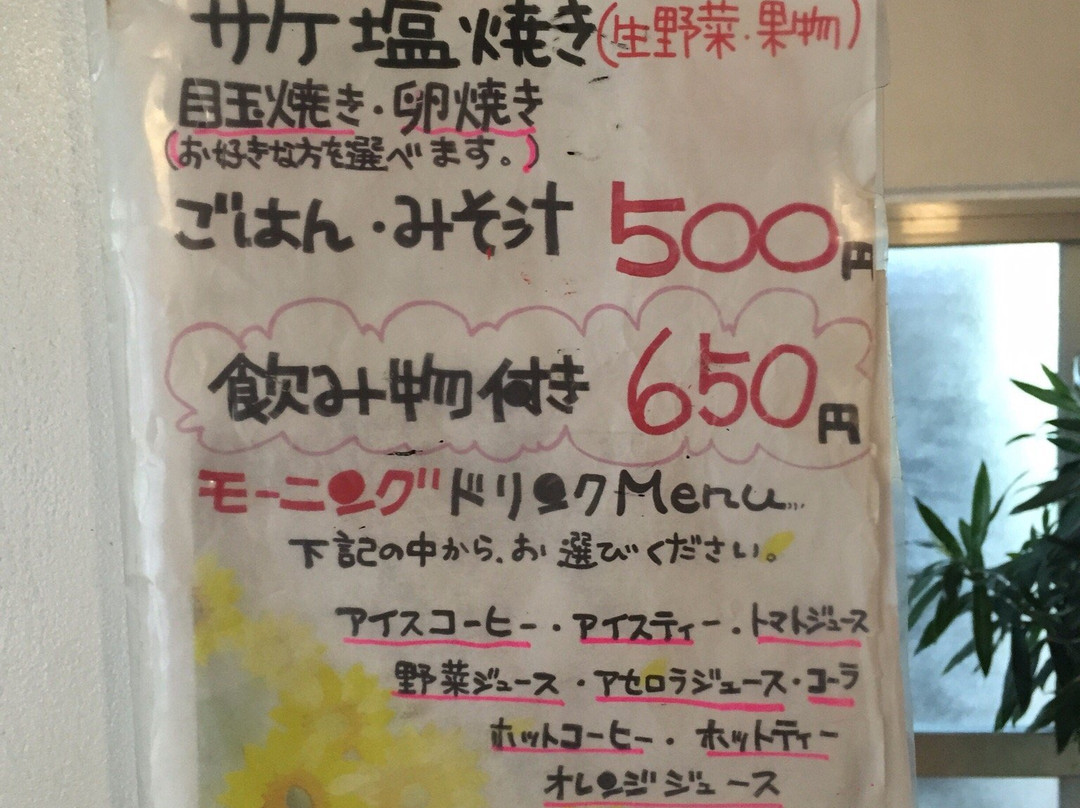 サケ塩焼き(生野菜・果物)
目玉焼き・卵焼き
(お好きな方を選べます。)
ごはん・みそ汁 500円
飲み物付き 650円
モーニングドリンクMenu...
下記の中から、お選びください。
アイスコーヒー・アイスティー・トマトジュース
野菜ジュース・アセロラジュース・コーラ
ホットコーヒー・ホットティー
オレンジジュース